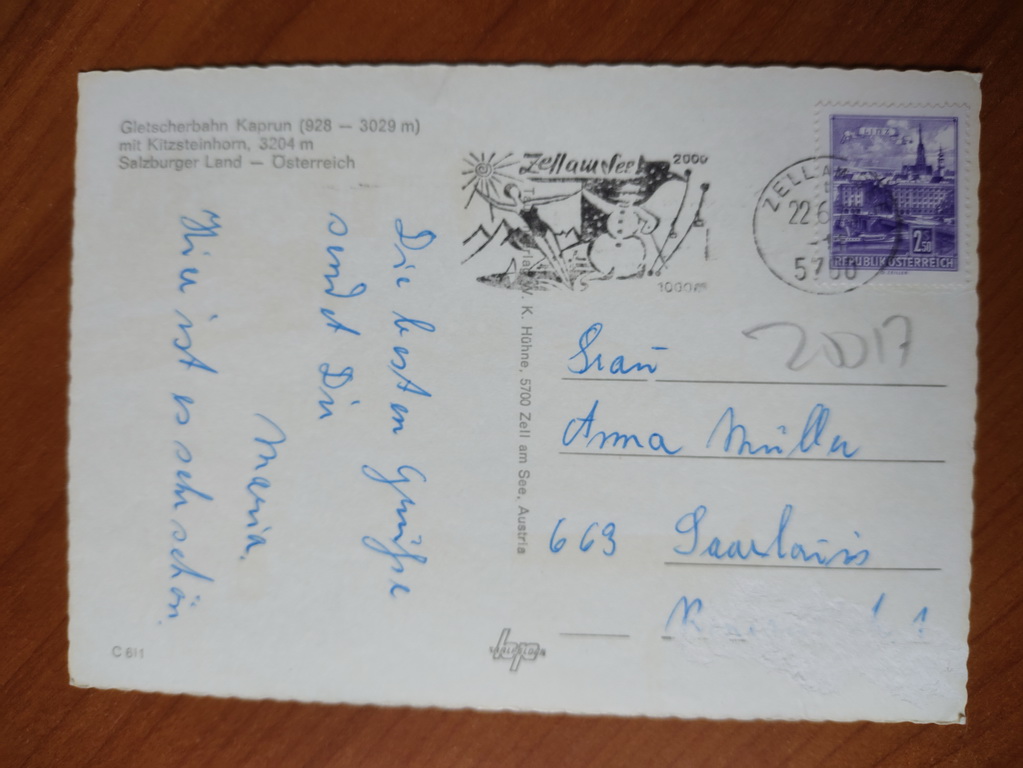 Gletscherbahn Kaprun (928 — 3029 m)
mit Kitzsteinhorn, 3204 m
Salzburger Land — Österreich
Die besten Grüße
sendet Dir
Maria.
Hier ist es sehr schön.
C 6/1
W. K. Hühne, 5700 Zell am See, Austria
Zell am See
2000
1000m
ZELL AM
22.6
5700
LINZ
2.50
REPUBLIK ÖSTERREICH
20017
Frau
Anna Müller
663 Saarlouis